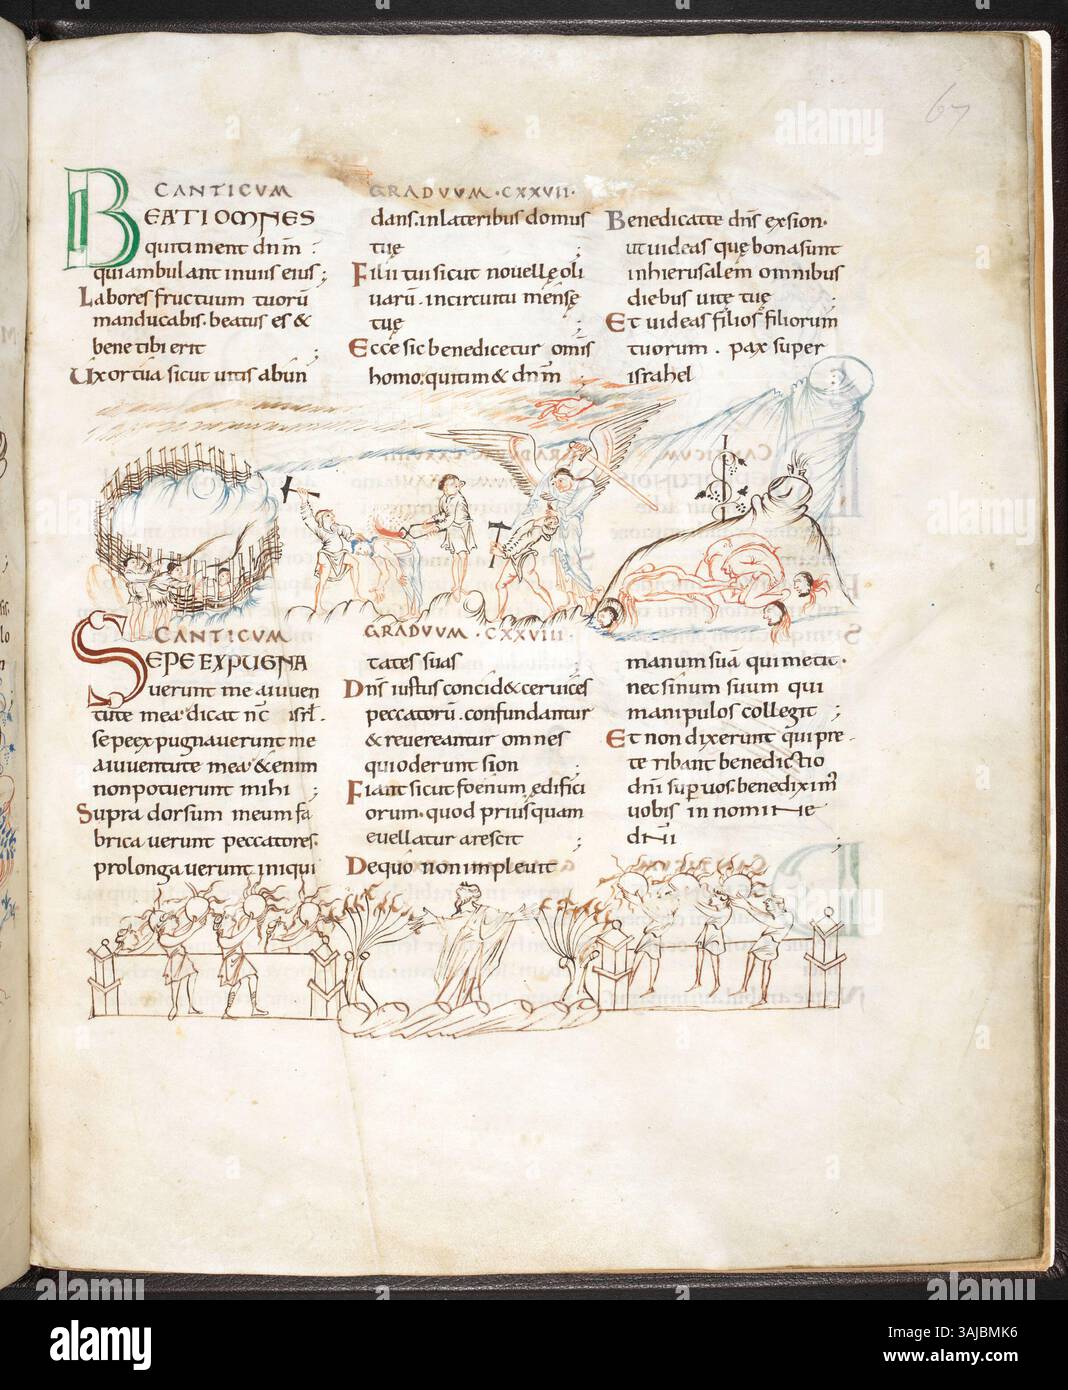 67
CANTICVM GRADVVM · CXXVII ·
BEATI OMNES
qui timent dnm̄ :
qui ambulant in uiis eius ;
Labores fructuum tuorū
manducabis · beatus es &
bene tibi erit ;
Uxor tua sicut uitis abun
dans · in lateribus domus
tuę ;
Filii tui sicut nouellę oli
uarū · in circuitu mensę
tuę ;
Ecce sic benedicetur om̄s
homo · qui tim& dnm̄ ;
Benedicat te dn̄s ex sion ·
ut uideas quę bona sunt
in hierusalem omnibus
diebus uitę tuę ;
Et uideas filios filiorum
tuorum · pax super
israhel
CANTICVM GRADVVM · CXXVIII ·
SEPE EXPUGNA
uerunt me a iuuen
tute mea · dicat nc̄ isrl̄ ·
sepe expugnauerunt me
a iuuentute mea · & enim
non potuerunt mihi ;
Supra dorsum meum fa
bricauerunt peccatores ·
prolongauerunt iniqui
tates suas
Dn̄s iustus concid& ceruices
peccatorū · confundantur
& reuereantur omnes
qui oderunt sion ;
Fiant sicut foenum ędifici
orum · quod priusquam
euellatur arescit ;
De quo non impleuit
manum suā qui metit ·
nec sinum suum qui
manipulos collegit ;
Et non dixerunt qui pre
teribant benedictio
dnī sup uos · benediximꝰ
uobis in nomine
dnī ;
alamy
Image ID: 3AJBMK6
www.alamy.com